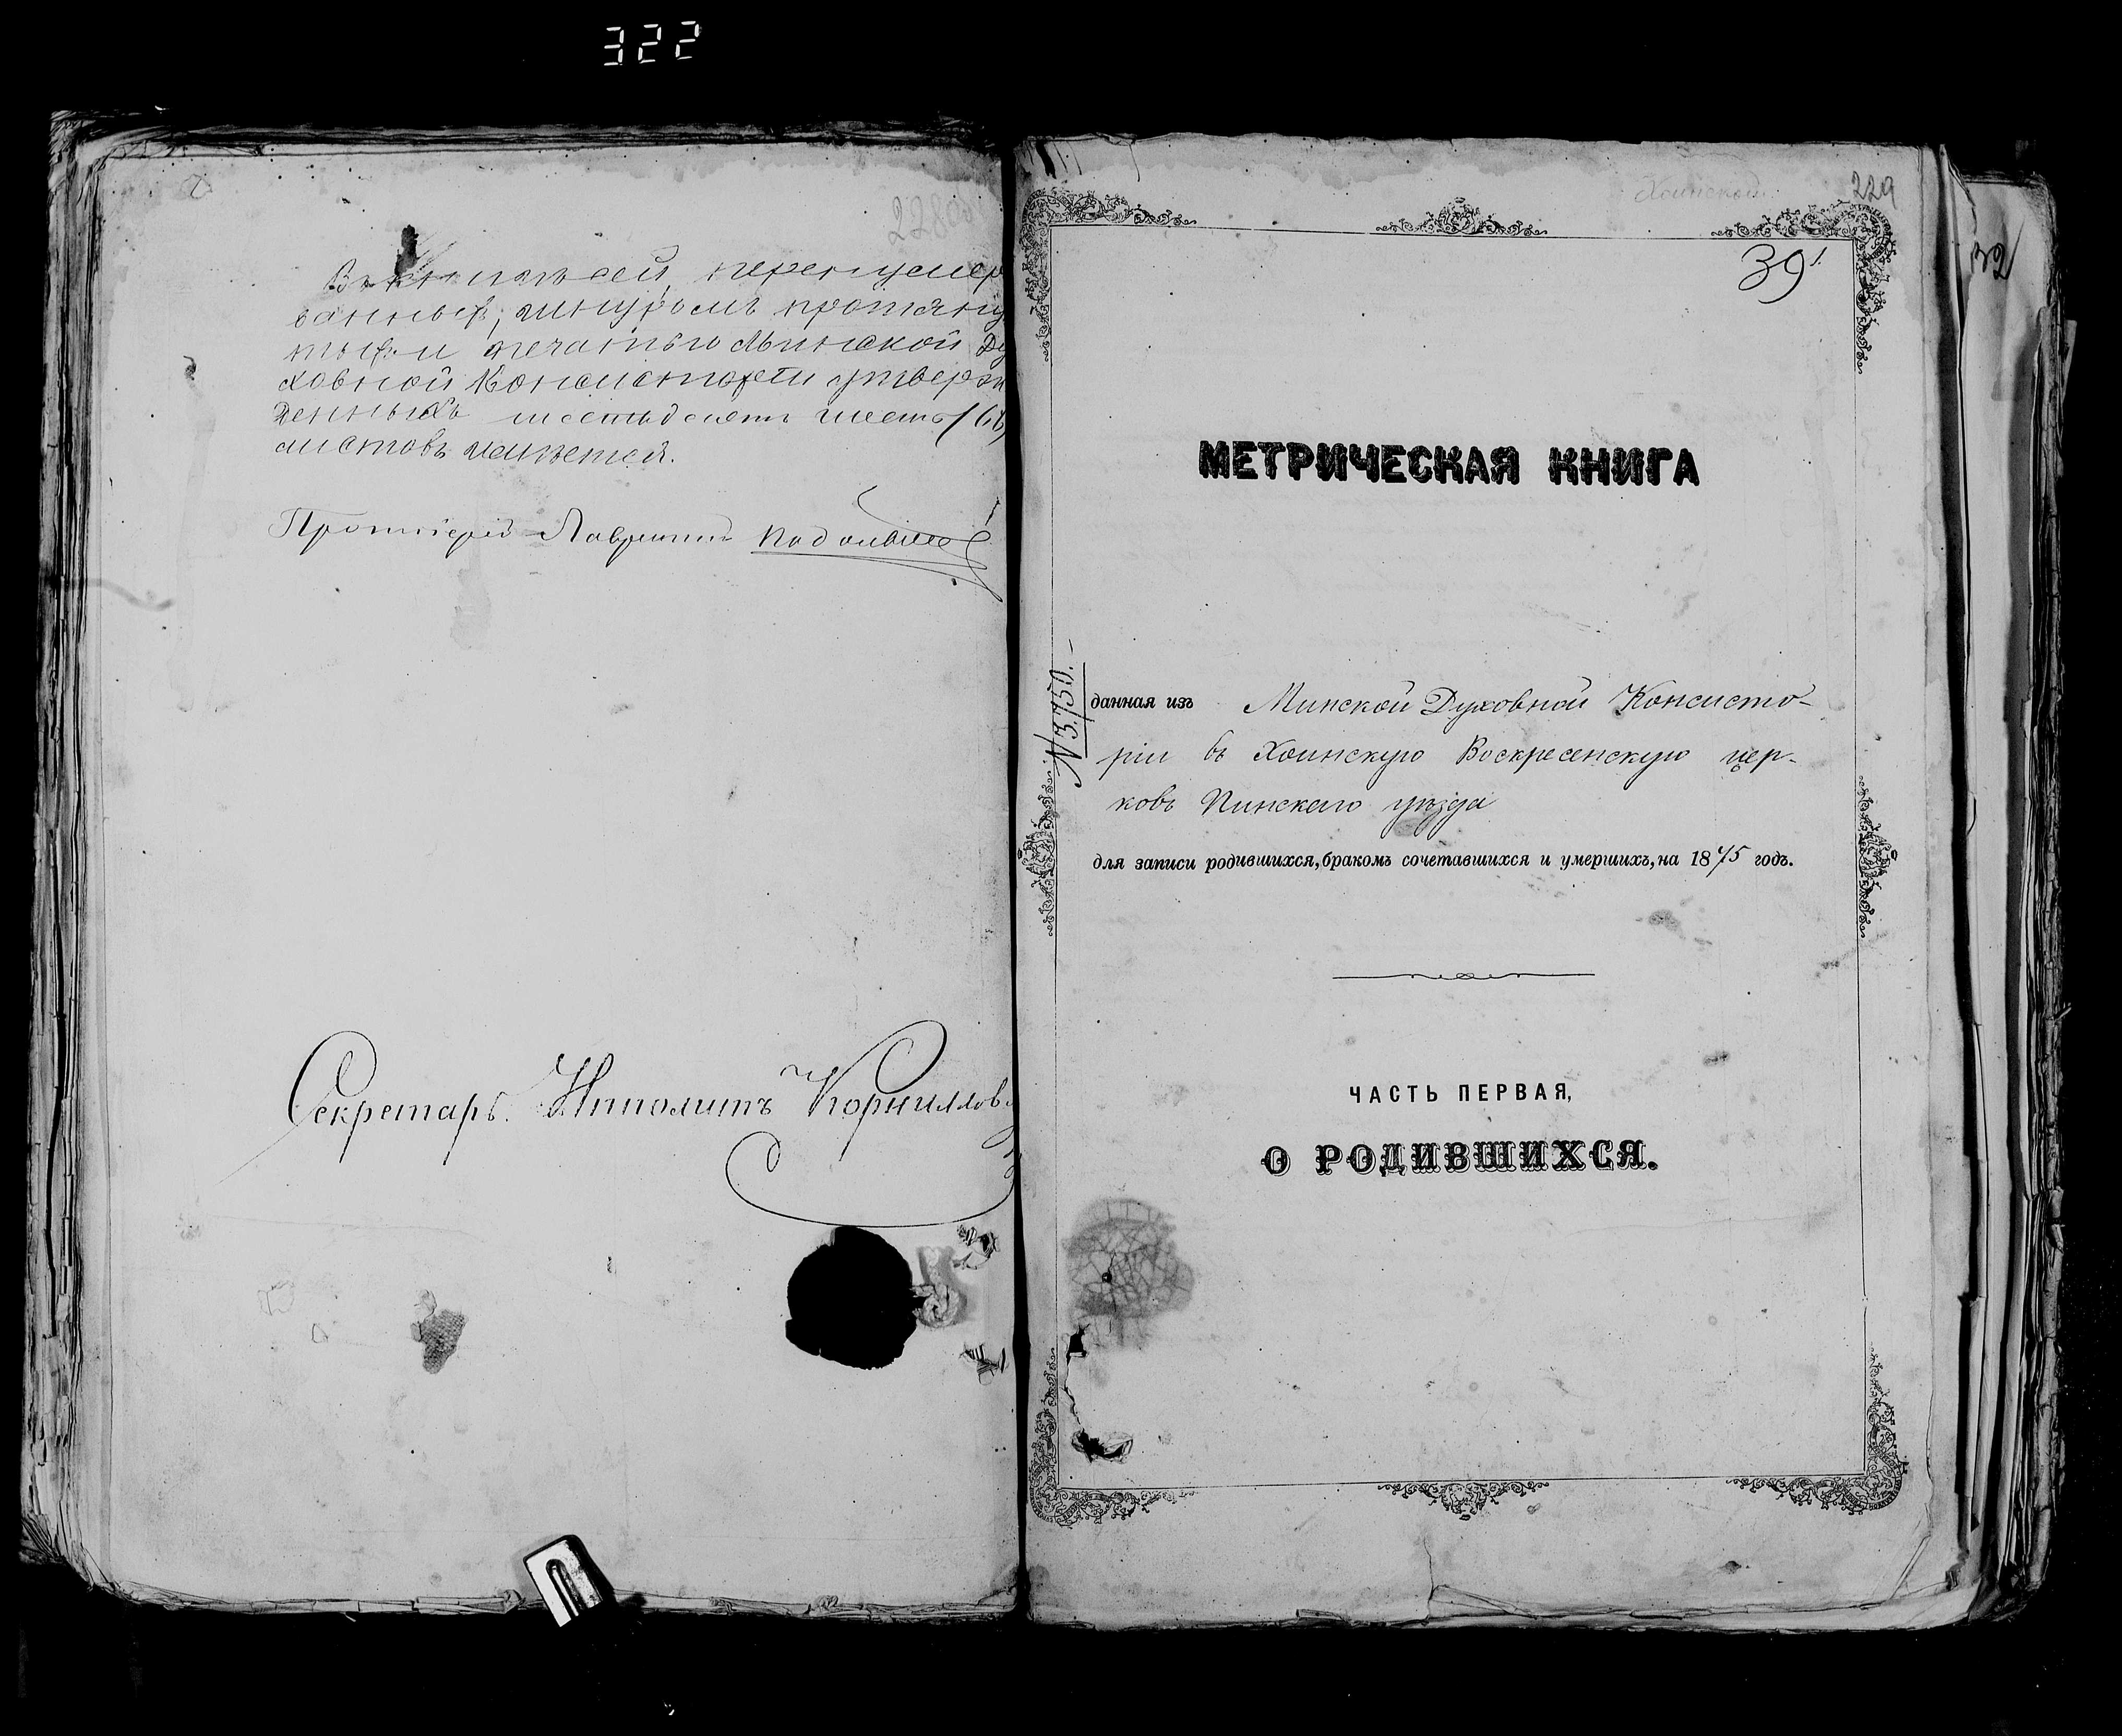 322
228об
Въ книгѣ сей, перенумеро
ванныхъ, шнуромъ протяну
тыхъ и печатью Минской Ду
ховной Консисторіи утверж
денныхъ шестьдесятъ шесть (66)
листовъ имѣется.
Протоіерей Лаврентій
Секретарь Ипполитъ Корниллов
Хоинской
229
39
32
МЕТРИЧЕСКАЯ КНИГА
№ 3750.-
данная изъ Минской Духовной Консисто-
ріи въ Хоинскую Воскресенскую цер-
ковь Пинскаго уѣзда
для записи родившихся, бракомъ сочетавшихся и умершихъ, на 1875 годъ.
ЧАСТЬ ПЕРВАЯ,
О РОДИВШИХСЯ.